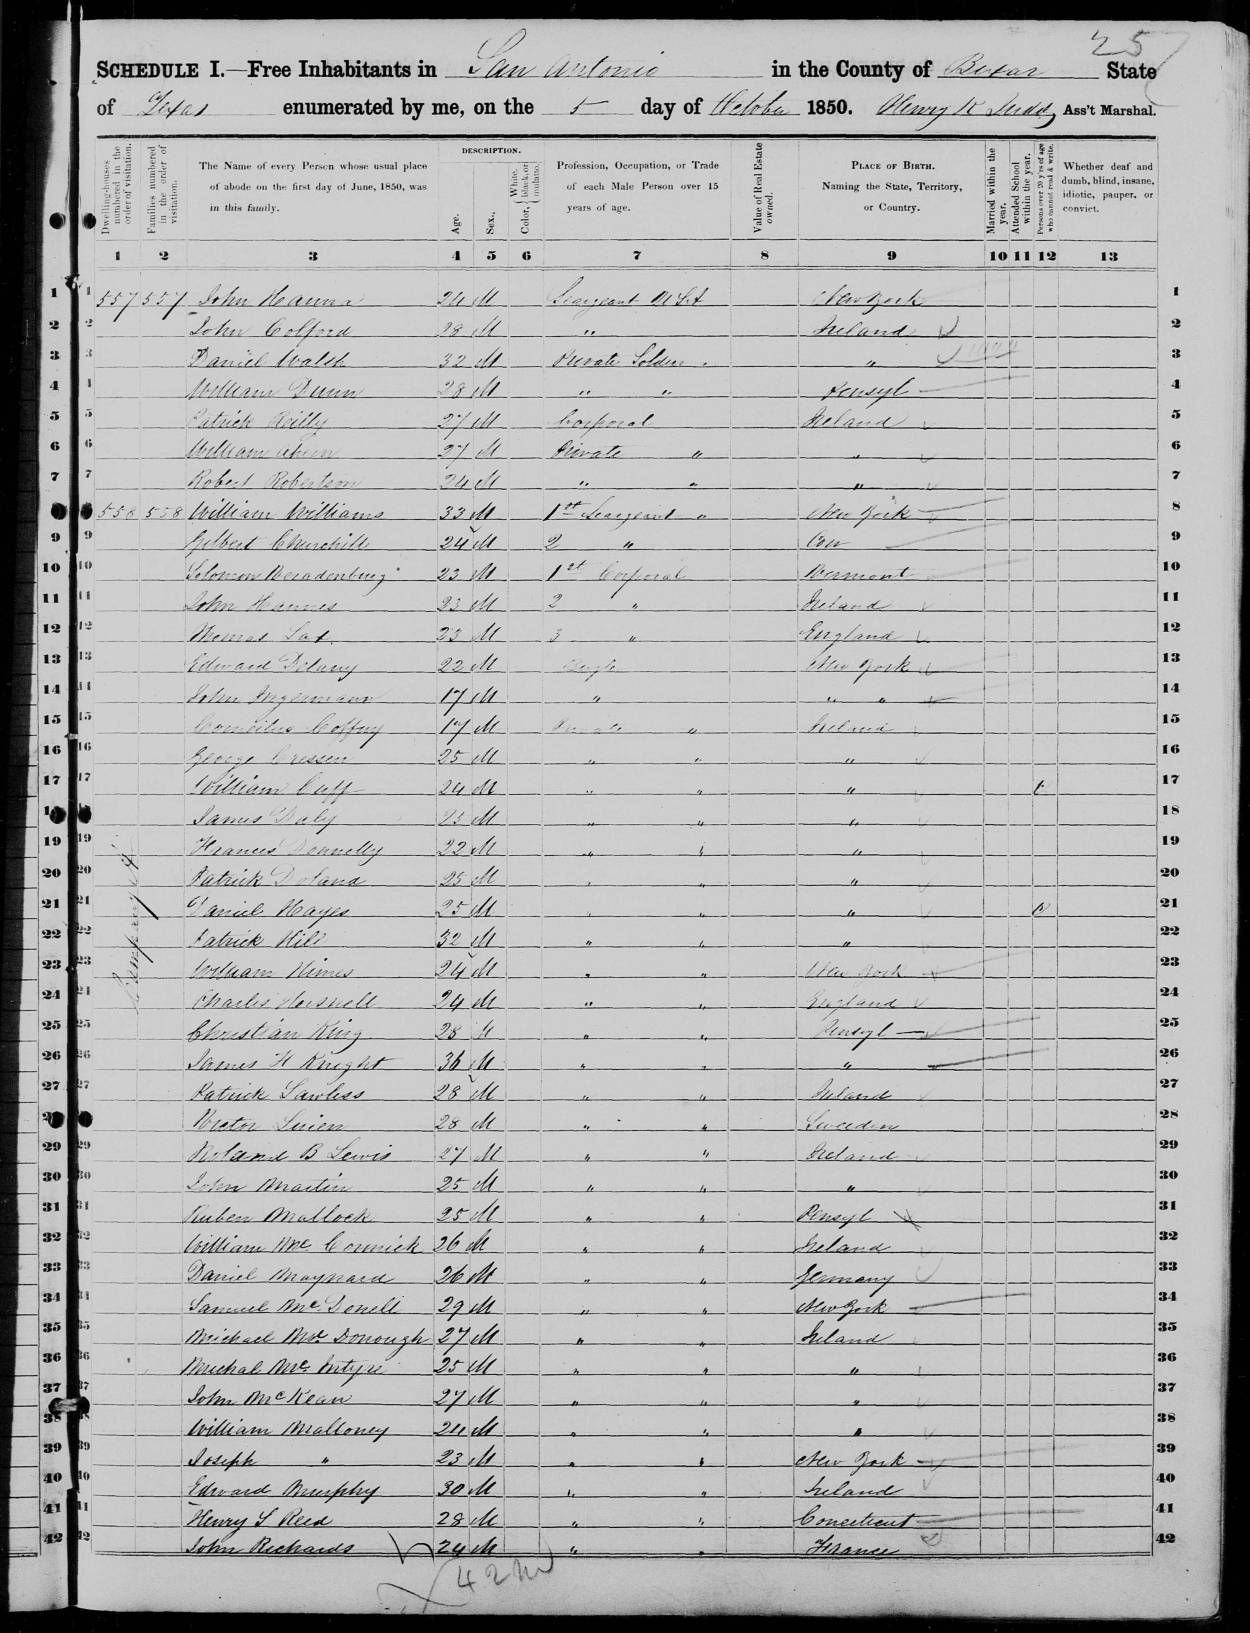 257
SCHEDULE I.—Free Inhabitants in San Antonio in the County of Bexar State
of Texas enumerated by me, on the 5 day of October 1850. Henry K Judd, Ass't Marshal.
Dwelling-houses numbered in the order of visitation.
Families numbered in the order of visitation.
The Name of every Person whose usual place of abode on the first day of June, 1850, was in this family.
DESCRIPTION.
Age.
Sex.
Color, White, black, or mulatto.
Profession, Occupation, or Trade of each Male Person over 15 years of age.
Value of Real Estate owned.
PLACE OF BIRTH. Naming the State, Territory, or Country.
Married within the year.
Attended School within the year.
Persons over 20 y'rs of age who cannot read & write.
Whether deaf and dumb, blind, insane, idiotic, pauper, or convict.
1 2 3 4 5 6 7 8 9 10 11 12 13
1 557 557 John Hanna 24 M Seargeant U.S.A New York 1
2 John Colford 28 M " Ireland 2
3 Daniel Walsh 32 M Private Soldier " 3
4 William Dunn 28 M " " Pensyl 4
5 Patrick Reilly 27 M Corporal Ireland 5
6 William Ahern 27 M Private " " 6
7 Robert Robertson 24 M " " " 7
8 558 558 William Williams 33 M 1st Seargeant " New York 8
9 Gilbert Churchill 24 M 2 " 9
10 Solomon 23 M 1st Corporal Vermont 10
11 John Hannes 23 M 2 " Ireland 11
12 Thomas Lax 23 M 3 " England 12
13 Edward Delany 22 M Bugle New York 13
14 John Ingermann 17 M " " " 14
15 Cornelius Coffey 17 M Private " Ireland 15
16 George Cressen 25 M " " " 16
17 William Cuff 24 M " " " 17
18 James Daly 23 M " " " 18
19 Frances Donnelly 22 M " " " 19
20 Patrick Doland 25 M " " " 20
21 Daniel Hayes 25 M " " " 21
22 Patrick Hill 32 M " " " 22
23 William Himes 24 M " " New York 23
24 Charles Horsnell 24 M " " England 24
25 Christian King 28 M " " Pensyl 25
26 James H Knight 36 M " " " 26
27 Patrick Lawless 28 M " " Ireland 27
28 Victor Linien 28 M " " Sweeden 28
29 Roland B Lewis 27 M " " Ireland 29
30 John Martin 25 M " " " 30
31 Ruben Mallock 25 M " " Pensyl 31
32 William Mc Cormick 26 M " " Ireland 32
33 Daniel Maynard 26 M " " Germany 33
34 Samuel Mc Donell 29 M " " New York 34
35 Michael Mc Donough 27 M " " Ireland 35
36 Michal Mc Intyre 25 M " " " 36
37 John McKean 27 M " " " 37
38 William Malloney 24 M " " " 38
39 Joseph " 23 M " " New York 39
40 Edward Murphy 30 M " " Ireland 40
41 Henry S Reed 28 M " " Conecticut 41
42 John Richards 24 M " " France 42
42 M